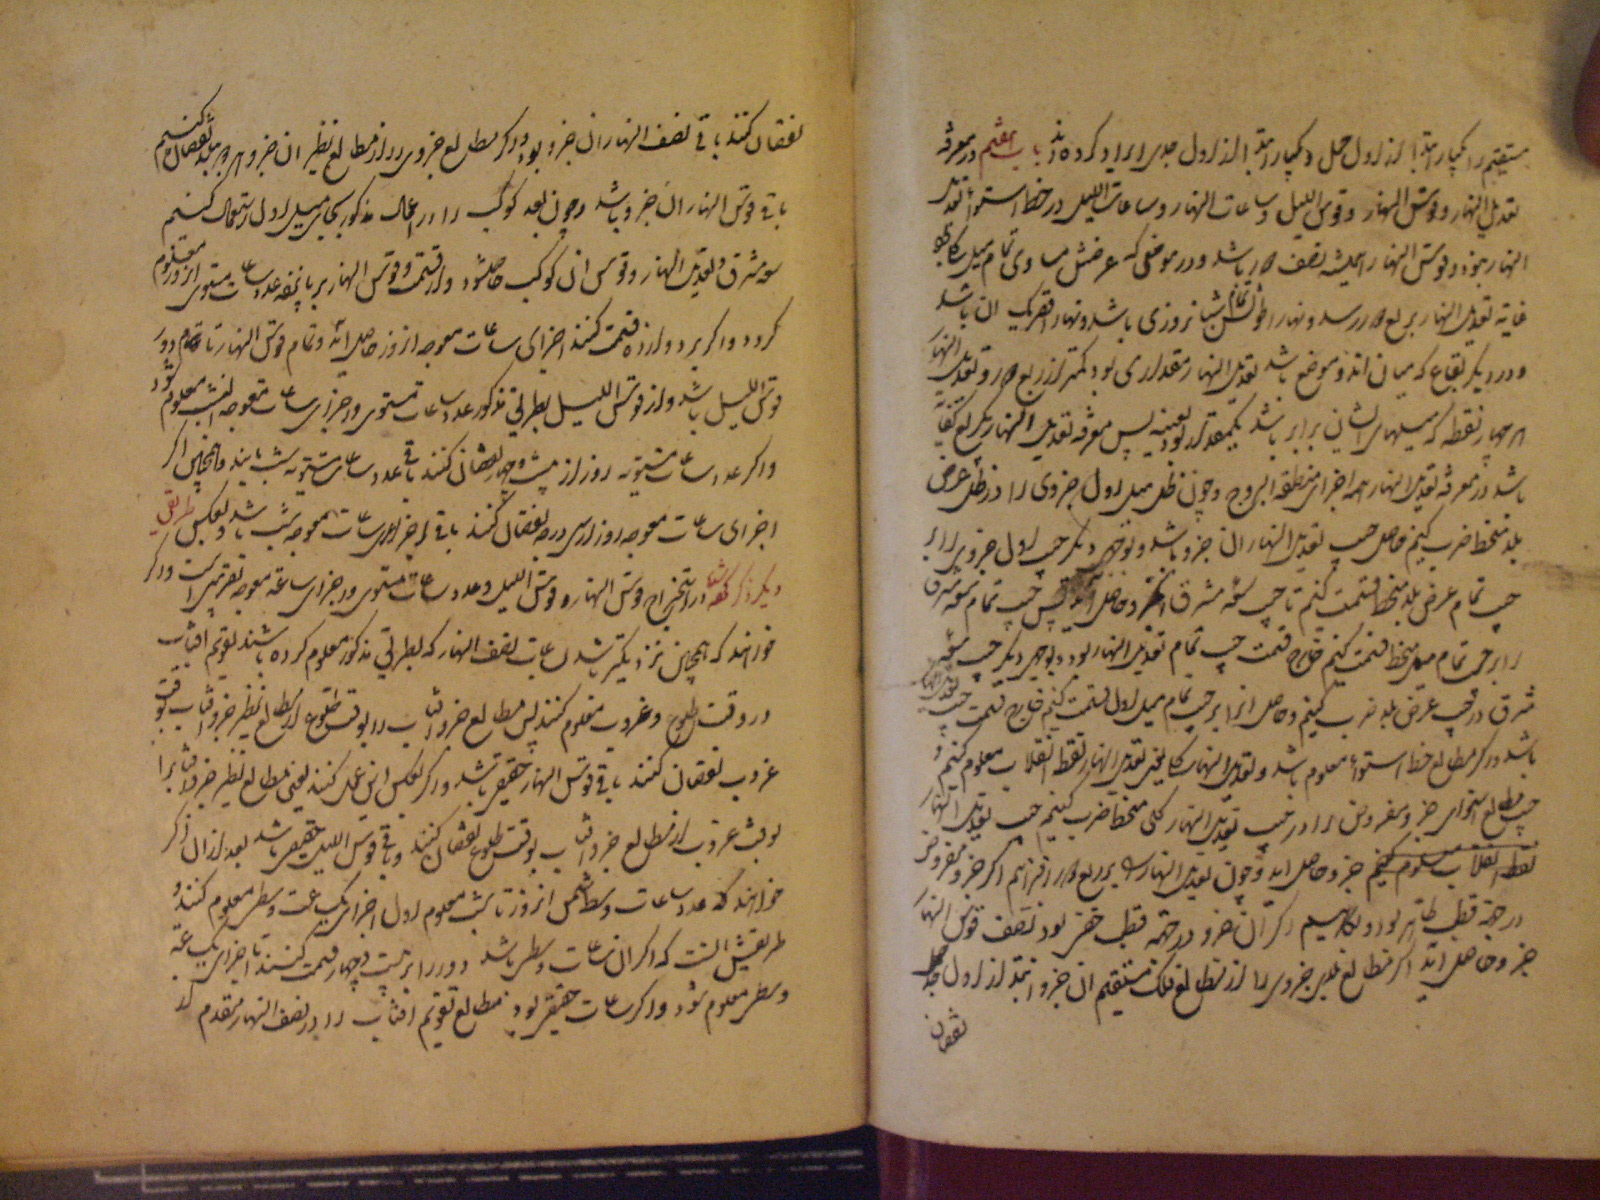 مستقیم را یکبار ابتدا از اول حمل و یکبار ابتدا از اول جدی ایراد کرده اند باب هفتم در معرفة
تعدیل النهار و قوس النهار و قوس اللیل و ساعات النهار و ساعات اللیل در خط استوا تعدیل
النهار نبود و قوس النهار همیشه نصف دور باشد و در موضعی که عرضش مساوی تمام میل کلی بود
غایة تعدیل النهار بربع دور رسد و نهار اطولش تمام شبانروزی باشد و نهار اقصر یک آن باشد
و در دیگر بقاع که میان این دو موضع باشد تعدیل النهار مقداری بود کمتر از ربع دور و تعدیل النهار
هر چهار نقطه که میلهای ایشان برابر باشد یکمقدار بود بعینه پس معرفة تعدیل النهار یک ربع کفایة
باشد در معرفة تعدیل النهار همه اجزای منطقة البروج و چون ظل میل اول جزوی را در ظل عرض
بلد منحط ضرب کنیم حاصل جیب تعدیل النهار آن جزو باشد و بوجهی دیگر جیب میل اول جزو بر
جیب تمام عرض بلد منحط قسمت کنیم تا جیب سعة مشرق آن جزو حاصل آید پس جیب تمام سعة مشرق
را بر جیب تمام میل منحط قسمت کنیم خارج قسمت جیب تمام تعدیل النهار بود و بوجهی دیگر جیب سعة
مشرق در جیب عرض بلد ضرب کنیم و حاصل را بر جیب تمام میل اول قسمت کنیم خارج قسمت جیب تعدیل النهار
باشد و اگر مطالع خط استوا معلوم باشد و تعدیل النهار کلی یعنی تعدیل النهار نقطه انقلاب معلوم کنیم و
جیب مطالع استوای جزو مفروض را در جیب تعدیل النهار کلی منحط ضرب کنیم جیب تعدیل النهار
جزو حاصل آید و چون تعدیل النهار بر ربع دور افزاییم اگر جزو مفروض
در جهة قطب ظاهر بود و بکاهیم اگر آن جزو در جهة قطب خفی بود نصف قوس النهار
جزو حاصل آید و اگر مطالع بلدی جزوی را از مطالع فلک مستقیم آن جزو ابتدا از اول
نقصان
نقصان کنند باقی نصف النهار آن جزو بود و اگر مطالع جزوی را از مطالع نظیر آن جزو هر دو ببلد نقصان کنیم
باقی قوس النهار آن جزو باشد و چون بعد کوکب را در اعمال مذکور بجای میل اول استعمال کنیم
سعة مشرق و تعدیل النهار و قوس آن کوکب حاصل شود و از قسمت قوس النهار بر پانزده عدد ساعات مستوی آن روز معلوم
گردد و اگر بر دوازده قسمت کنند اجزای ساعات معوجه آن روز حاصل آید و تمام قوس النهار تا تمام دور
قوس اللیل باشد و از قوس اللیل بطریق مذکور عدد ساعات مستوی و اجزای ساعات معوجه آن شب معلوم شود
و اگر عدد ساعات مستویه روز از بیست و چهار نقصان کنند باقی عدد ساعات مستویه شب باشد و همچنین اگر
اجزای ساعات معوجه روز از سی درجه نقصان کنند باقی اجزای ساعات معوجه شب باشد و بالعکس طریقی
دیگر در استخراج قوس النهار و قوس اللیل و عدد ساعات مستوی و اجزای ساعة معوجه تقریبی است و اگر
خواهند که همچنین نزدیکتر باشد ساعات نصف النهار که بطریق مذکور معلوم کرده باشند تقویم آفتاب
در وقت طلوع و غروب معلوم کنند پس مطالع جزو آفتاب را بوقت طلوع از مطالع نظیر جزو آفتاب بوقت
غروب نقصان کنند باقی قوس النهار حقیقی باشد و اگر بعکس این عمل کنند یعنی مطالع نظیر جزو آفتاب را
بوقت غروب از مطالع جزو آفتاب بوقت طلوع نقصان کنند باقی قوس اللیل حقیقی باشد بعد از آن اگر
خواهند که عدد ساعات وسطی آن روز یا شب معلوم اول اجزای یک ساعت وسطی معلوم کنند و
طریقش آنست که اگر آن ساعات وسطی باشد دور را بر بیست و چهار قسمت کنند تا اجزای یک ساعة
وسطی معلوم شود و اگر ساعات حقیقی بود مطالع تقویم آفتاب را در نصف النهار مقدم